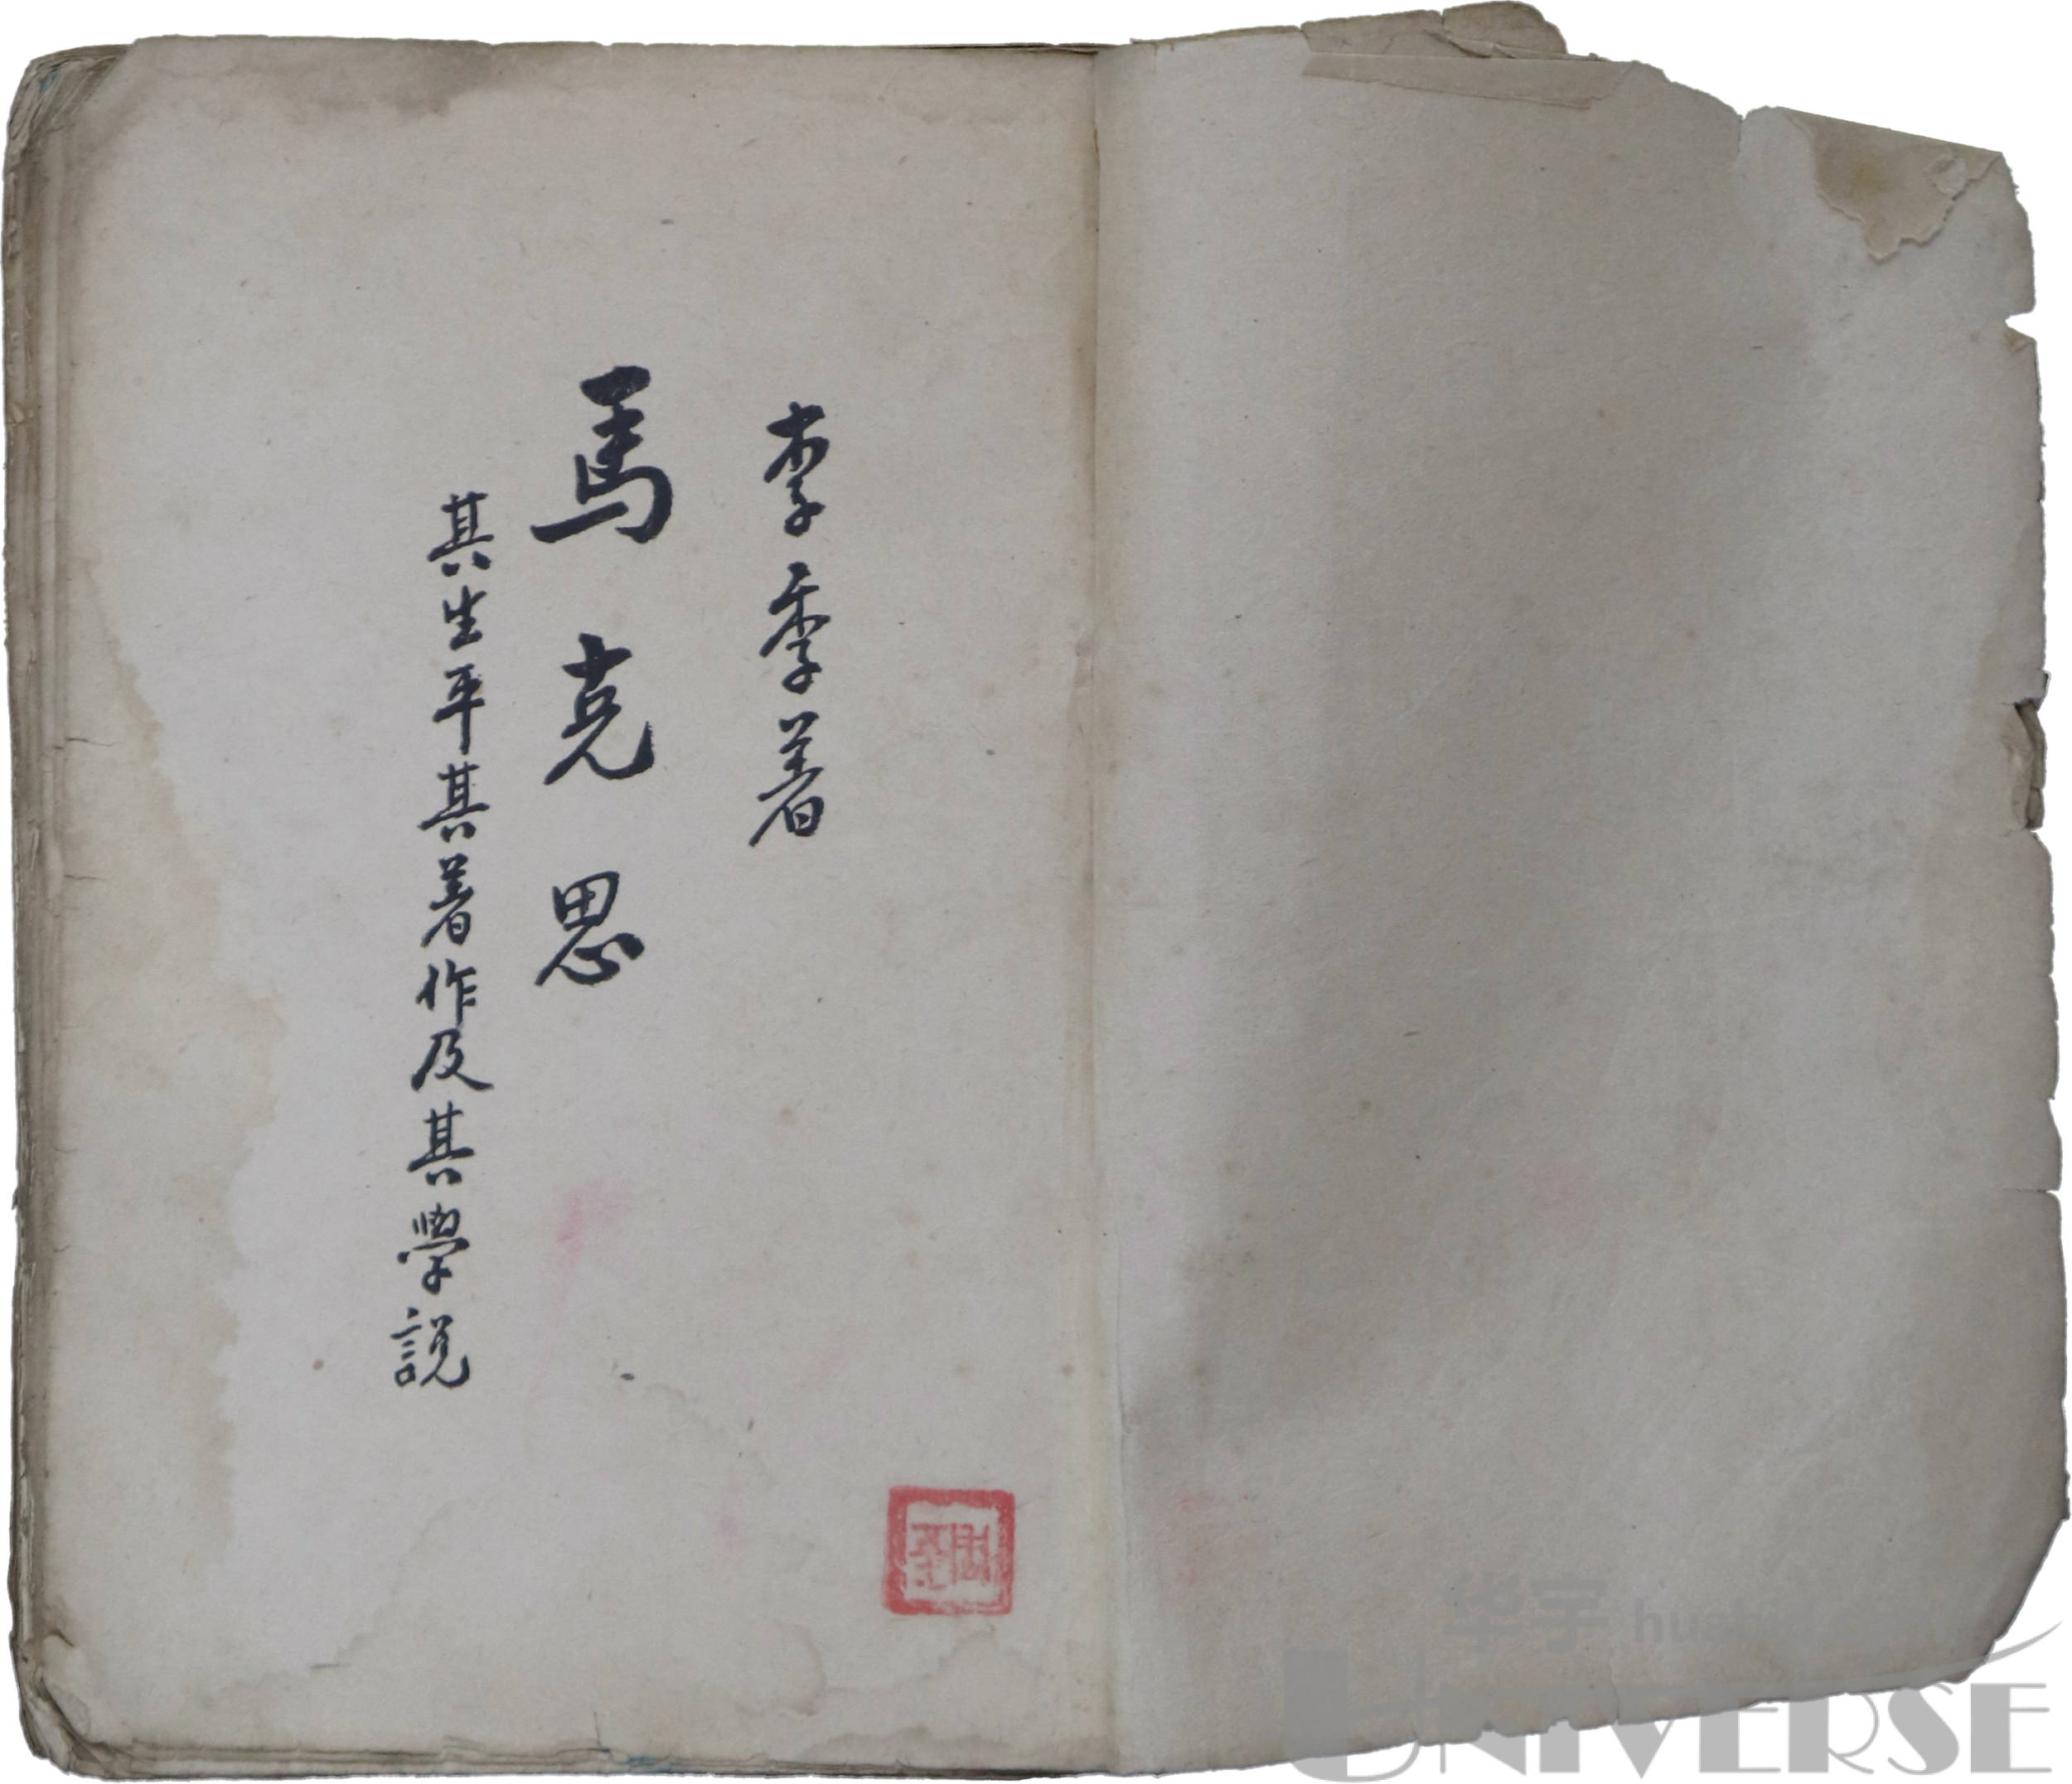 李季著
馬克思
其生平其著作及其學説
华宇 hua
UNIVERSE